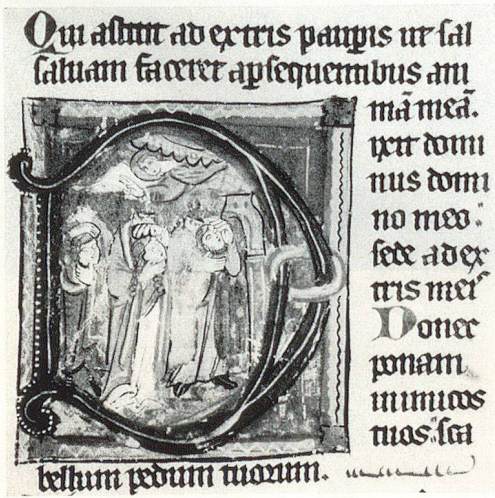 Qui astitit ad extris pauperis ut sal
saluam faceret apsequentibus ani
mā meā.
ixit domi
nus domi
no meo
sede ad ex
tris meis
Donec
ponam
inimicos
tuos sca
bellum pedum tuorum.